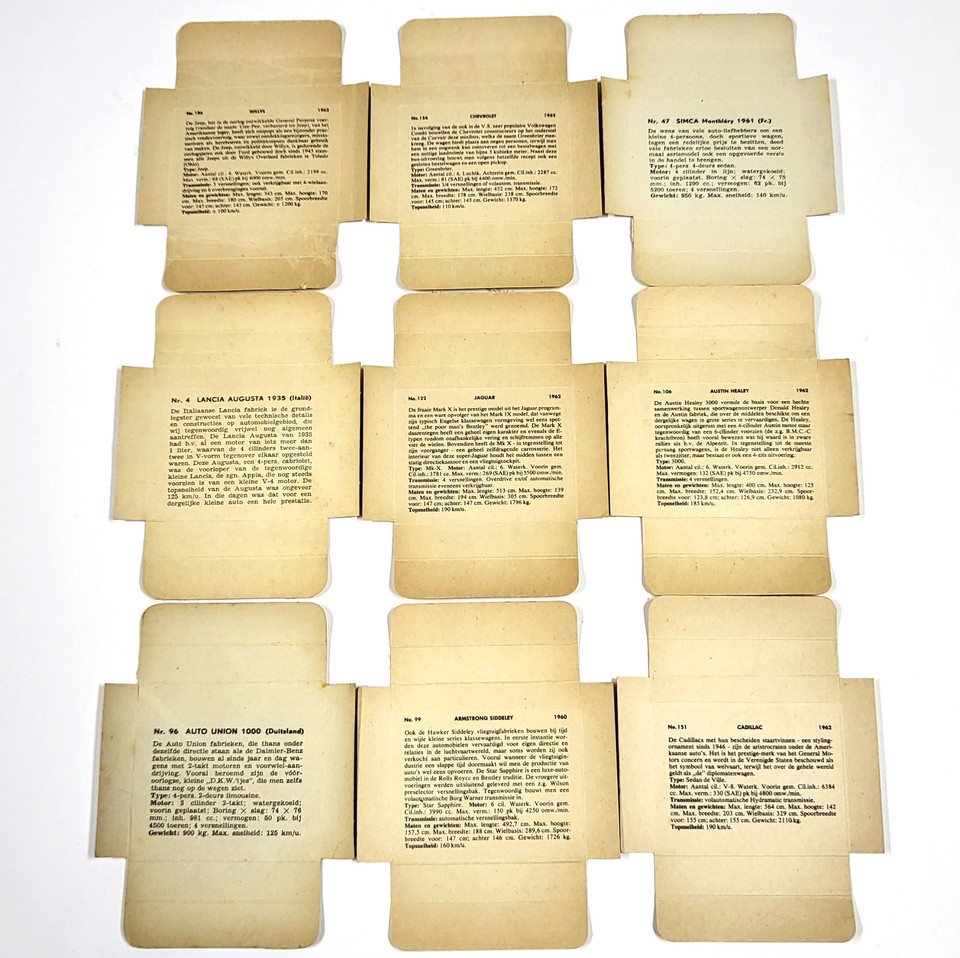 No. 126 WILLYS 1962
De Jeep, het in de oorlog ontwikkelde General Purpose voer-
Amerikaanse leger, heeft zich ontpopt als een bijzonder prac-
van maken. De Jeep, ontwikkeld door Willys, is gedurende de
men alle Jeeps uit de Willys Overland fabrieken te Toledo
(Ohio).
Type: Jeep.
Motor: Aantal cil.: 4. Waterk. Voorin gem. Cil.inh.: 2199 cc.
Transmissie: 3 versnellingen; ook verkrijgbaar met 4-wielaan-
drijving en 6 overbrengingen vooruit.
cm. Max. breedte: 180 cm. Wielbasis: 205 cm. Spoorbreedte
voor: 145 cm; achter: 145 cm. Gewicht: ± 1200 kg.
Topsnelheid: ± 100 km/u.
No. 156 CHEVROLET 1962
In navolging van de ook in de V.S. zeer populaire Volkswagen
Combi bouwden de Chevrolet constructeurs op het onderstel
van de Corvair deze stationcar, welke de naam Greenbrier mee-
kreeg. De wagen biedt plaats aan negen personen, terwijl men
hem in een oogwenk kan omtoveren tot een bestelwagen met
een nuttige laadruimte van bijna 5 kubieke meter. Naast deze
bus-uitvoering bouwt men volgens hetzelfde recept ook een
gesloten bestelwagen en een open pickup.
Type: Greenbrier.
Motor: Aantal cil.: 6. Luchtk. Achterin gem. Cil.inh.: 2287 cc.
Max. verm.: 81 (SAE) pk bij 4400 omw./min.
Transmissie: 3/4 versnellingen of volautom. transmissie.
Maten en gewichten: Max. lengte: 452 cm. Max. hoogte: 172
cm. Max. breedte: 178 cm. Wielbasis: 238 cm. Spoorbreedte
voor: 145 cm; achter: 145 cm. Gewicht: 1370 kg.
Topsnelheid: 110 km/u.
Nr. 47 SIMCA Monthléry 1961 (Fr.)
De wens van vele auto-liefhebbers om een
kleine 4-persoons, doch sportieve wagen,
tegen een redelijke prijs te bezitten, deed
vele fabrieken ertoe besluiten van een nor-
maal seriemodel ook een opgevoerde versie
in de handel te brengen.
Type: 4-pers. 4-deurs sedan.
Motor: 4 cilinder in lijn; watergekoeld;
voorin geplaatst. Boring × slag: 74 × 75
mm.; inh. 1290 cc.; vermogen: 62 pk. bij
5200 toeren; 4 versnellingen.
Gewicht: 950 kg. Max. snelheid: 140 km/u.
Nr. 4 LANCIA AUGUSTA 1935 (Italië)
De Italiaanse Lancia fabriek is de grond-
legster geweest van vele technische details
en constructies op automobielgebied, die
wij tegenwoordig vrijwel nog algemeen
aantreffen. De Lancia Augusta van 1935
had b.v. al een motor van iets meer dan
1 liter, waarvan de 4 cilinders twee-aan-
twee in V-vorm tegenover elkaar opgesteld
waren. Deze Augusta, een 4-pers. cabriolet,
was de voorloper van de tegenwoordige
kleine Lancia, de zgn. Appia, die nog steeds
voorzien is van een kleine V-4 motor. De
topsnelheid van de Augusta was ongeveer
125 km/u. In die dagen was dat voor een
dergelijke kleine auto een hele prestatie.
No. 122 JAGUAR 1962
De fraaie Mark X is het prestige model uit het Jaguar program-
ma en een ware opvolger van het Mark IX model, dat vanwege
zijn typisch Engelse klassewagen vormgeving wel eens spot-
tend „the poor man's Bentley” werd genoemd. De Mark X
daarentegen heeft een geheel eigen karakter en evenals de E-
typen rondom onafhankelijke vering en schijfremmen op alle
vier de wielen. Bovendien heeft de Mk X - in tegenstelling tot
zijn voorganger - een geheel zelfdragende carrosserie. Het
interieur van deze super-Jaguar houdt het midden tussen een
statig directiekantoor en een vliegtuigcockpit.
Type: Mk-X. Motor: Aantal cil.: 6. Waterk. Voorin gem.
Cil.inh.: 3781 cc. Max. verm.: 269 (SAE) pk bij 5500 omw./min.
Transmissie: 4 versnellingen. Overdrive en/of automatische
transmissie eveneens verkrijgbaar.
Maten en gewichten: Max. lengte: 513 cm. Max. hoogte: 139
cm. Max. breedte: 194 cm. Wielbasis: 305 cm. Spoorbreedte
voor: 147 cm; achter: 147 cm. Gewicht: 1796 kg.
Topsnelheid: 190 km/u.
No. 106 AUSTIN HEALEY 1962
De Austin Healey 3000 vormde de basis voor een hechte
samenwerking tussen sportwagenontwerper Donald Healey
en de Austin fabriek, die over de middelen beschikte om een
dergelijke wagen in grote series te vervaardigen. De Healey,
oorspronkelijk uitgerust met een 4-cilinder Austin motor maar
tegenwoordig van een 6-cilinder voorzien (de z.g. B.M.C.-C
krachtbron) heeft vooral bewezen wat hij waard is in zware
rallies als b.v. de Alpenrit. In tegenstelling tot de meeste
pursang sportwagens, is de Healey niet alleen verkrijgbaar
als tweezitter, maar bestaat er ook een 4-zits uitvoering.
Type: 3000.
Motor: Aantal cil.: 6. Waterk. Voorin gem. Cil.inh.: 2912 cc.
Max. vermogen: 132 (SAE) pk bij 4750 omw./min.
Transmissie: 4 versnellingen.
Maten en gewichten: Max. lengte: 400 cm. Max. hoogte: 125
cm. Max. breedte: 152,4 cm. Wielbasis: 232,9 cm. Spoor-
breedte voor: 123,8 cm; achter: 126,9 cm. Gewicht: 1080 kg.
Topsnelheid: 185 km/u.
Nr. 96 AUTO UNION 1000 (Duitsland)
De Auto Union fabrieken, die thans onder
dezelfde directie staan als de Daimler-Benz
fabrieken, bouwen al sinds jaar en dag wa-
gens met 2-takt motoren en voorwiel-aan-
drijving. Vooral beroemd zijn de vóór-
oorlogse, kleine „D.K.W.'tjes”, die men zelfs
thans nog op de wegen ziet.
Type: 4-pers. 2-deurs limousine.
Motor: 3 cilinder 2-takt; watergekoeld;
voorin geplaatst; Boring × slag: 74 × 76
mm.; inh. 981 cc.; vermogen: 50 pk. bij
4500 toeren; 4 versnellingen.
Gewicht: 900 kg. Max. snelheid: 125 km/u.
No. 99 ARMSTRONG SIDDELEY 1960
Ook de Hawker Siddeley vliegtuigfabrieken bouwen bij tijd
en wijle kleine series klassewagens. In eerste instantie wor-
den deze automobielen vervaardigd voor eigen directie en
relaties in de luchtvaartwereld, maar soms worden zij ook
verkocht aan particulieren. Vooral wanneer de vliegtuigin-
dustrie een slappe tijd doormaakt wil men de productie van
auto's wel eens opvoeren. De Star Sapphire is een luxe-auto-
mobiel in de Rolls Roycc en Bentley traditie. De vroegere uit-
voeringen werden uitsluitend geleverd met een z.g. Wilson
preselector versnellingsbak. Tegenwoordig bouwt men een
volautomatische Borg Warner transmissie in.
Type: Star Sapphire. Motor: 6 cil. Waterk. Voorin gem.
Cil.inh.: 3990 cc. Max. verm.: 150 pk bij 4250 omw./min.
Transmissie: automatische versnellingsbak.
Maten en gewichten: Max. lengte: 492,7 cm. Max. hoogte:
157,5 cm. Max. breedte: 188 cm. Wielbasis: 289,6 cm. Spoor-
breedte voor: 147 cm; achter 146 cm. Gewicht: 1726 kg.
Topsnelheid: 160 km/u.
No. 151 CADILLAC 1962
De Cadillacs met hun bescheiden staartvinnen - een styling-
ornament sinds 1946 - zijn de aristrocraten onder de Ameri-
kaanse auto's. Het is het prestige-merk van het General Mo-
tors concern en wordt in de Verenigde Staten beschouwd als
het symbool van welvaart, terwijl het over de gehele wereld
geldt als „de” diplomatenwagen.
Type: Sedan de Ville.
Motor: Aantal cil.: V-8. Waterk. Voorin gem. Cil.inh.: 6384
cc. Max. verm.: 330 (SAE) pk bij 4800 omw./min.
Transmissie: volautomatische Hydramatic transmissie.
Maten en gewichten: Max. lengte: 564 cm. Max. hoogte: 142
cm. Max. breedte: 203 cm. Wielbasis: 329 cm. Spoorbreedte
voor: 155 cm; achter: 155 cm. Gewicht: 2110 kg.
Topsnelheid: 190 km/u.